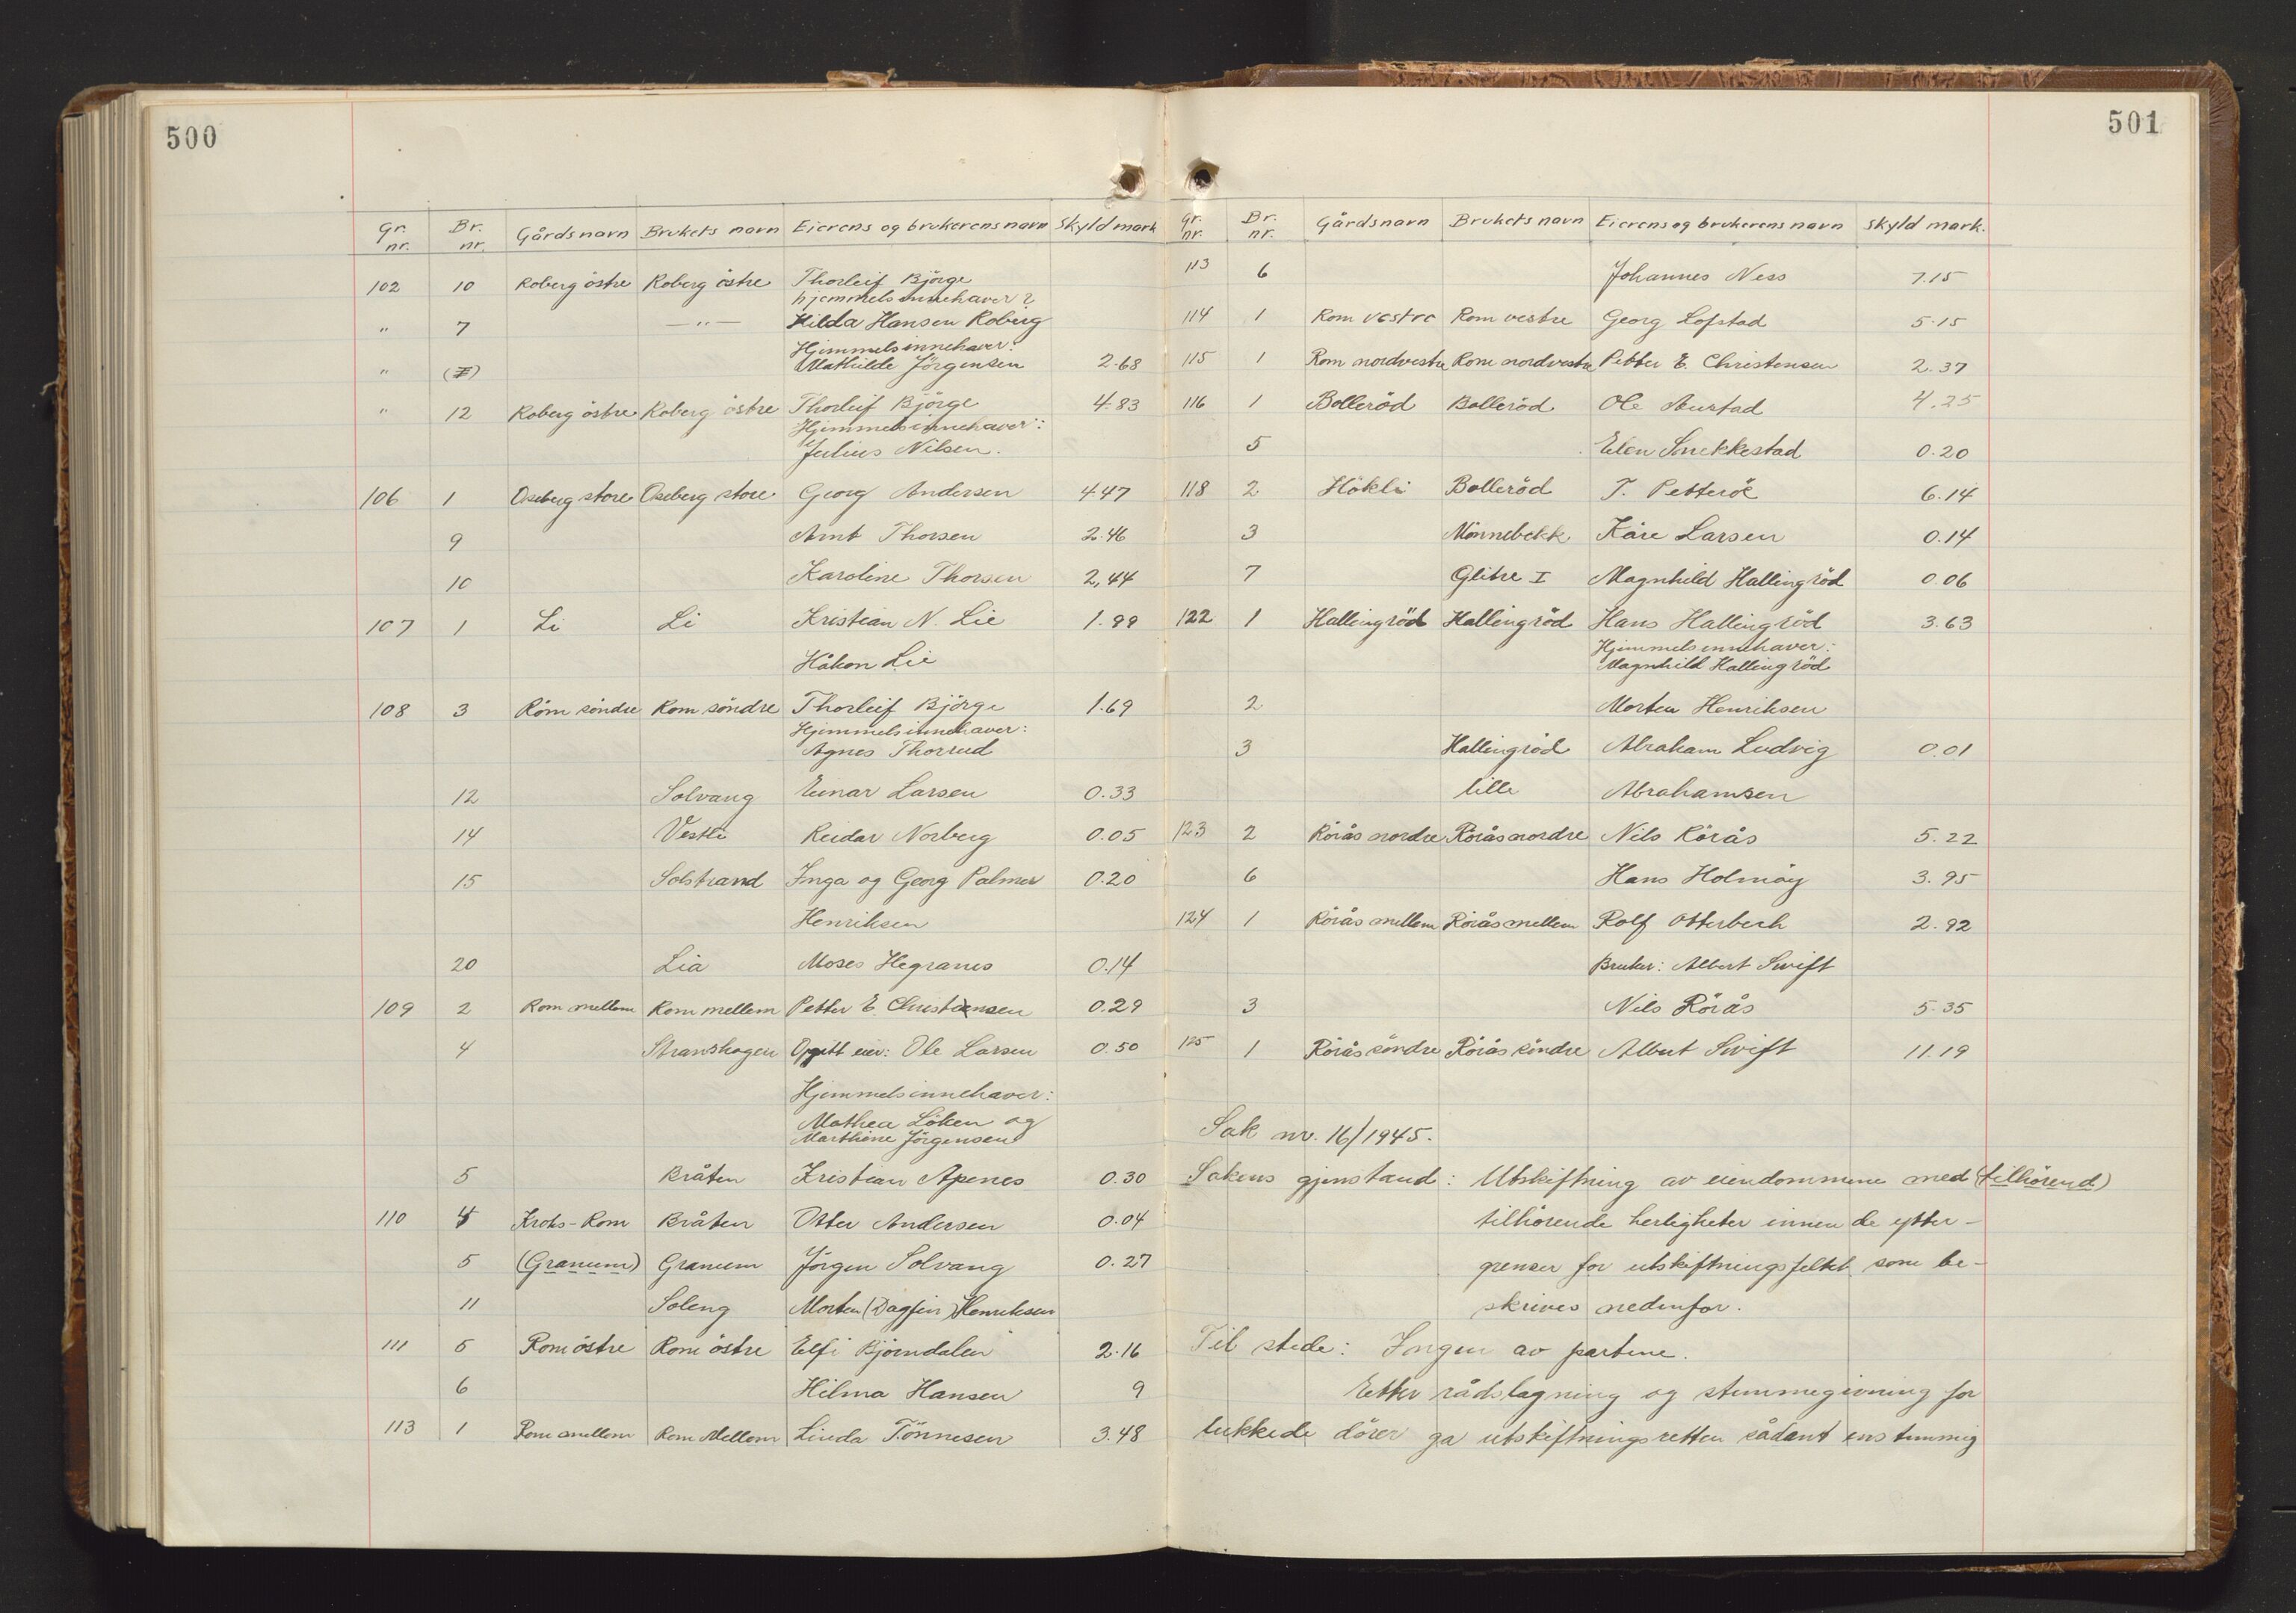 500
Gr. nr. Br. nr. Gårdsnavn Brukets navn Eierens og brukerens navn Skyld mark
102 10 Roberg östre Roberg östre Thorleif Björge
hjemmelsinnehaver?
" 7 —"— Hilda Hansen Roberg
Hjemmelsinnehaver:
" (7) Mathilde Jörgensen 2.68
" 12 Roberg östre Roberg östre Thorleif Björge 4.83
Hjemmelsinnehaver:
Julius Nilsen.
106 1 Oseberg store Oseberg store Georg Andersen 4.47
9 Arnt Thorsen 2.46
10 Karoline Thorsen 2,44
107 1 Li Li Kristian N. Lie 1.99
Håkon Lie
108 3 Rom söndre Rom söndre Thorleif Björge 1.69
Hjemmelsinnehaver:
Agnes Thorrud
12 Solvang Einar Larsen 0.33
14 Vestli Reidar Norberg 0.05
15 Solstrand Inga og Georg Palmer 0.20
Henriksen
20 Lia Moses Hegranes 0.14
109 2 Rom mellem Rom mellem Petter E. Christensen 0.29
4 Stranskogen Opgitt eier: Ole Larsen 0.50
Hjemmelsinnehaver:
Mathea Löken og
Marthine Jörgensen
5 Bråten Kristian Apenes 0.30
110 4 Kroks-Rom Bråten Otter Andersen 0.04
5 (Granum) Granum Jörgen Solvang 0.27
11 Soleng Morten (Dagfin) Henriksen
111 5 Rom östre Rom östre Elfi Björndalen 2.16
6 Hilma Hansen 9
113 1 Rom mellom Rom Mellom Linda Tönnesen 3.48
501
Gr. nr. Br. nr. Gårdsnavn Brukets navn Eierens og brukerens navn Skyld mark.
113 6 Johannes Ness 7.15
114 1 Rom vestre Rom vestre Georg Lofstad 5.15
115 1 Rom nordvestre Rom nordvestre Petter E. Christensen 2.37
116 1 Bolleröd Bolleröd Ole Aurstad 4.25
5 Elen Snekkestad 0.20
118 2 Hökli Bolleröd T. Petteröe 6.14
3 Mönnebekk Kåre Larsen 0.14
7 Glitre I Magnhild Hallingröd 0.06
122 1 Hallingröd Hallingröd Hans Hallingröd 3.63
Hjemmelsinnehaver:
Magnhild Hallingröd
2 Morten Henriksen
3 Hallingröd Abraham Ludvig 0.01
lille Abrahamsen
123 2 Rörås nordre Rörås nordre Nils Rörås 5.22
6 Hans Holmöy 3.95
124 1 Rörås mellem Rörås mellem Rolf Otterbech 2.92
Bruker: Albert Swift
3 Nils Rörås 5.35
125 1 Rörås söndre Rörås söndre Albert Swift 11.19
Sak nr. 16/1945.
Sakens gjenstand: Utskiftning av eiendommene med (tilhörend)
tilhörende herligheter innen de ytter-
grenser for utskiftningsfeltet som be-
skrives nedenfor.
Til stede: Ingen av partene.
Etter rådslagning og stemmegivning for
lukkede dörer ga utskiftningsretten sådant enstemmig